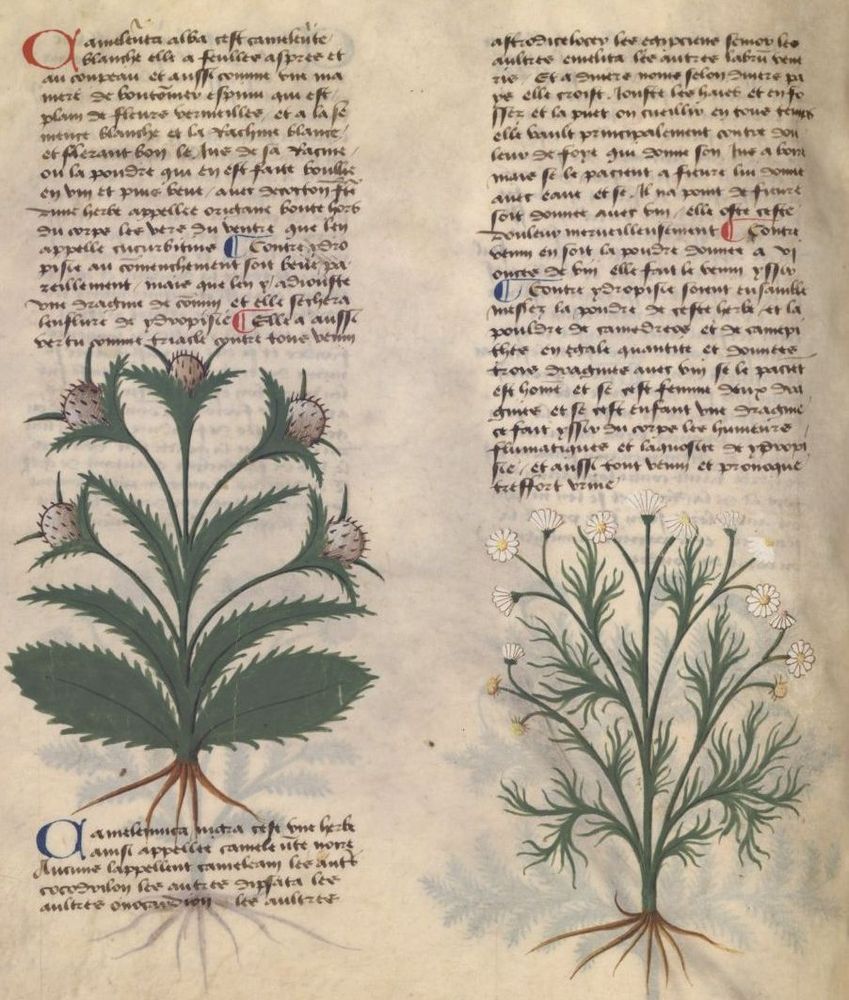 Cameleuta alba cest cameleute
blanche elle a feulles aspres et
au coupeau et aussi comme vne ma
niere de boutonner espinu qui est
plain de fleurs vermeilles, et a la se
mence blanche et la Rachine blance,
et flerant bon le Jus de sa Racine,
ou la poudre qui en est faite boullie
en vin et puis beue, auec
dune herbe appellee origane boute hors
du corps les vers du ventre que len
appelle cucurbitins Contre ydro
pisie au comenchement soit beue pa,
reillement, mais que len y adiouste
vne dragme de comin et elle sechera
lenflure de ydropisie Elle a aussi
vertu comme triacle contre tous venin
Camelemnca nigra cest vne herbe
ainsi appellee cameleute noire
Aucuns lappellent cameleam les autres
cocodrilon les autres dipsata les
aultres onocardion les aultres
les egipciens semor les
aultres emelita les autres labrum vene
ris, Et a diuers noms selon diuers pa
ys elle croist Jouste les haies et en fo
ssez et la puet on cueillir en tous temps
elle vault principalement contre dou
leur de foye qui donne son Jus a boire
mais se le pacient a fieure lui donne
auec eaue et se Il na point de fieure
soit donnee auec vin, elle oste ceste
douleur merueilleusement Contre
venin en soit la poudre donnee a vi
onces de vin elle fait le venin yssir
Contre ydropisie soient ensamble
meslez la poudre de ceste herbe, et la
pouldre de camedreos et de camepi
theos en egale quantite et donnees
trois dragmes auec vin se le pacient
est home et se cest femme deux dra
gmes et se cest enfant vne dragme
ce fait yssir du corps les humeurs
flumatiques et laquosite de ydropi
sie, et aussi tout venin et prouoque
treffort vrine